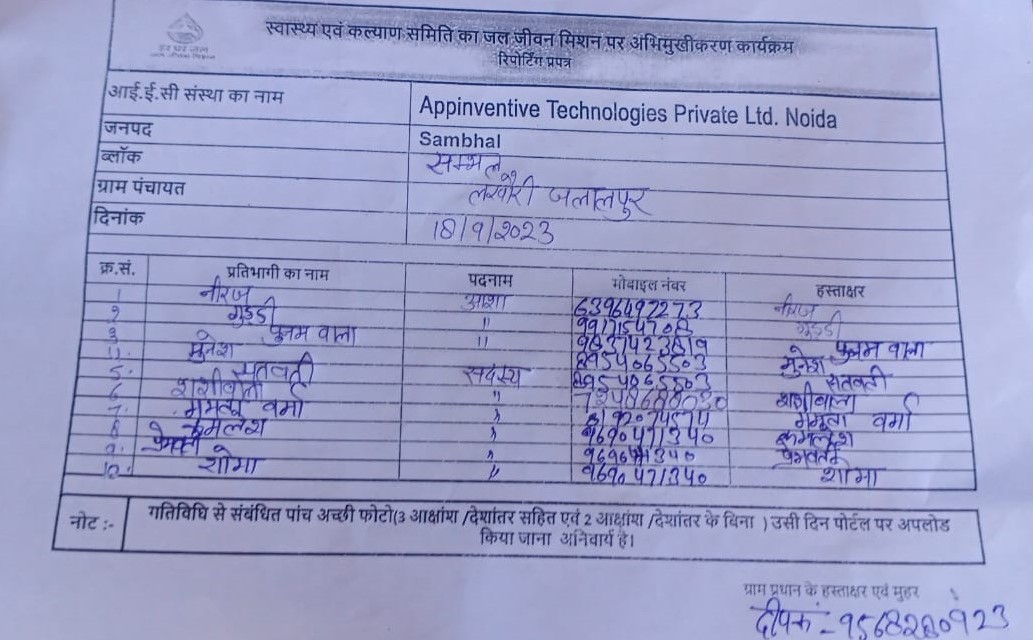 हर घर जल
जल जीवन मिशन
स्वास्थ्य एवं कल्याण समिति का जल जीवन मिशन पर अभिमुखीकरण कार्यक्रम
रिपोर्टिंग प्रपत्र
आई.ई.सी संस्था का नाम Appinventive Technologies Private Ltd. Noida
जनपद Sambhal
ब्लॉक सम्भल
ग्राम पंचायत लखौरी जलालपुर
दिनांक 18/9/2023
क्र.सं. प्रतिभागी का नाम पदनाम मोबाइल नंबर हस्ताक्षर
1 नीरज आशा 6396497273 नीरज
2 गुड्डी " गुड्डी
3 पुनम वाला " पुनम वाला
मुनेश 8954065503 मुनेश
5. सतवती सदस्य 8954065503 सतवती
6 शशीबाला " शशीबाला
7. ममता वर्मा " ममता वर्मा
8 कमलेश " 9690471340 कमलेश
9. "
10. शोभा " 9690471340 शोभा
नोट :- गतिविधि से संबंधित पांच अच्छी फोटो(3 आक्षांश /देशांतर सहित एवं 2 आक्षांश /देशांतर के बिना ) उसी दिन पोर्टल पर अपलोड
किया जाना अनिवार्य है।
ग्राम प्रधान के हस्ताक्षर एवं मुहर